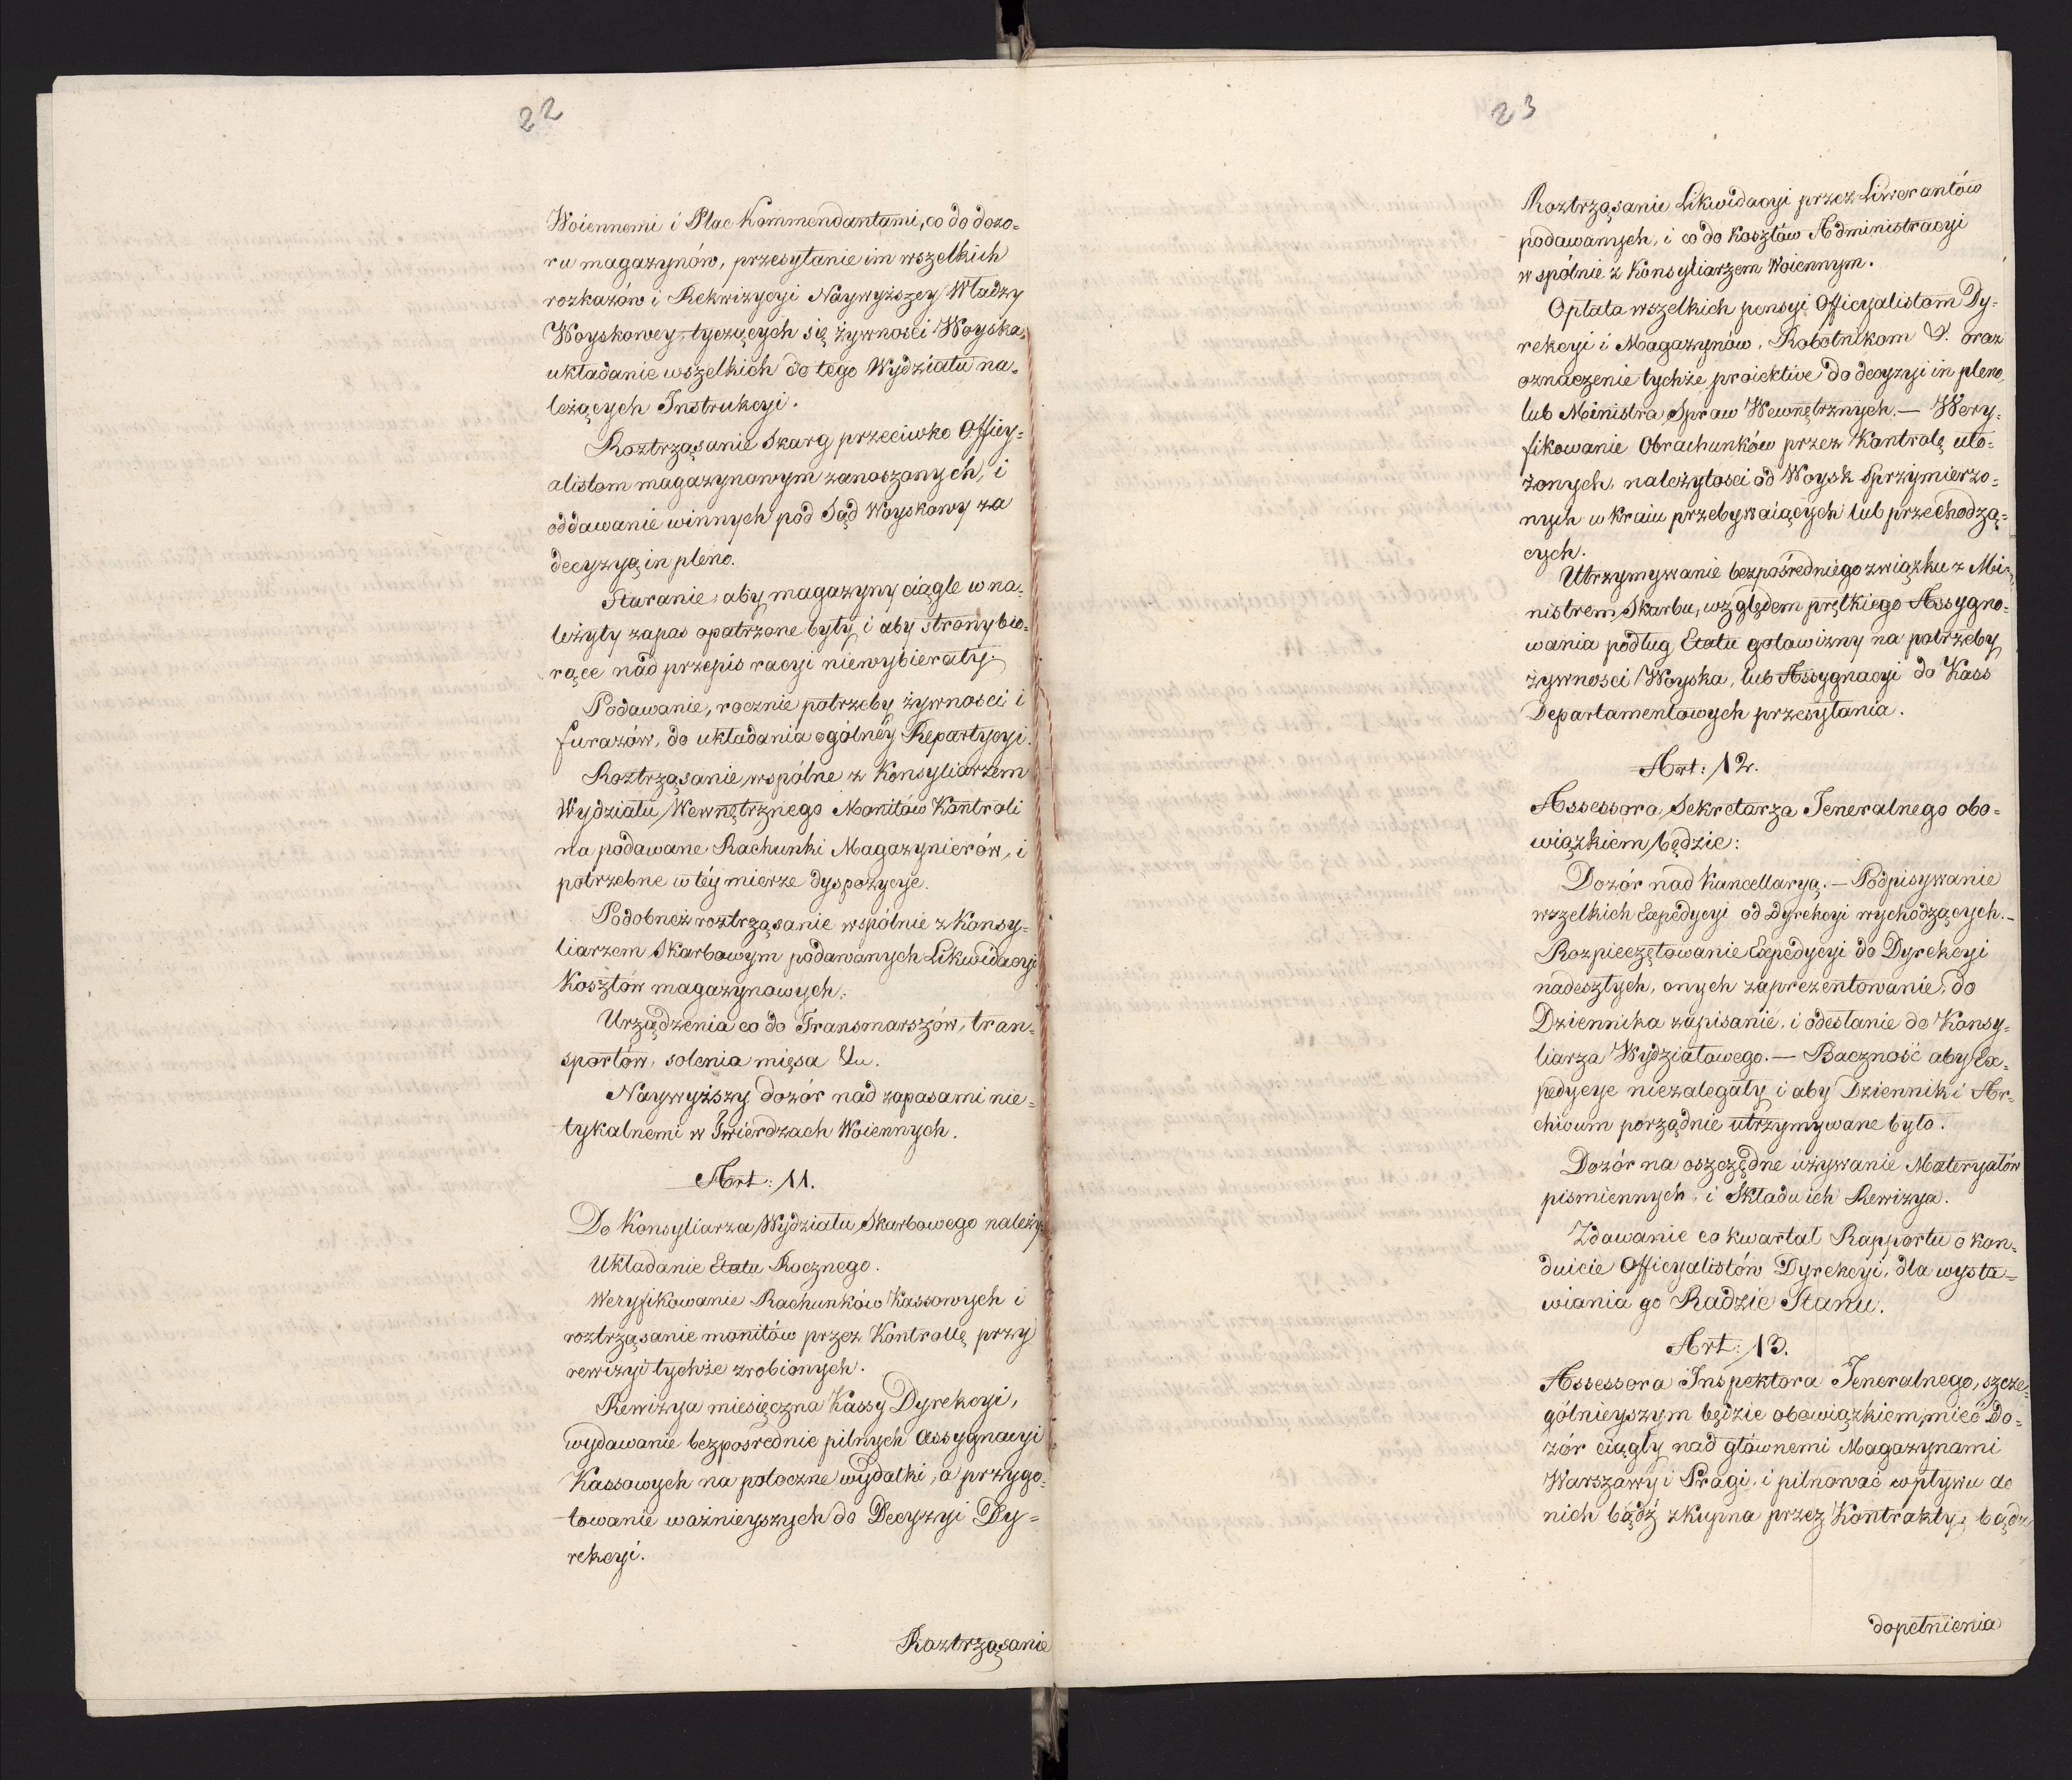 22
Woiennemi i Plac Kommendantami, co do dozo-
ru magazynów, przesyłanie im wszelkich
rozkazów i Rekwizycyi Naywyższey Władzy
Woyskowey, tyczących się żywnosci Woyska,
układanie wszelkich do tego Wydziału na-
leżących Instrukcyi.
Roztrząsanie Skarg przeciwko Officy-
alistom magazynowym zanoszonych, i
oddawanie winnych pod Sąd Woyskowy za
decyzyą in pleno.
Staranie, aby magazyny ciągle w na-
leżyty zapas opatrzone były, i aby strony bio-
rące nad przepis racyi niewybierały.
Podawanie, rocznie potrzeby żywności i
furażów, do układania ogólnéy Repartycyi.
Roztrząsanie, wspólne z Konsyliarzem
Wydziału Wewnętrznego Monitów Kontroli
na podawane Rachunki Magazynierów, i
potrzebne w téy mierze dyspozycye.
Podobneż roztrząsanie wspólnie z Konsy-
liarzem Skarbowym podawanych Likwidacyi
Kosztów magazynowych.
Urządzenia co do Transmarszów, tran-
sportów, solenia mięsa &c.
Naywyższy dozór nad zapasami nie-
tykalnemi w Twierdzach Woiennych.
Art: 11.
Do Konsyliarza Wydziału Skarbowego należy:
Układanie Etatu Rocznego.
Weryfikowanie Rachunków Kassowych i
roztrząsanie monitów przez Kontrollę przy
rewizyi tychże zrobionych.
Rewizya miesięczna Kassy Dyrekcyi,
wydawanie bezpośrednie pilnych Assygnacyi
Kassowych na potoczne wydatki, a przygo-
towanie ważnieyszych do Decyzyi Dy-
rekcyi.
Roztrząsanie
23
Roztrząsanie Likwidacyi przez Liwerantów
podawanych, i co do Kosztów Administracyi
wspólnie z Konsyliarzem Woiennym.
Opłata wszelkich pensyi Officyalistom Dy-
rekcyi i Magazynów, Robotnikom &. oraz
oznaczenie tychże proiektive do decyzyi in pleno,
lub Ministra Spraw Wewnętrznych. — Wery-
fikowanie Obrachunków przez Kontrolę uło-
żonych, należytosci od Woysk Sprzymierzo-
nych w kraiu przebywaiących lub przechodzą-
cych.
Utrzymywanie bezpośredniego związku z Mi-
nistrem Skarbu, względem prętkiego Assygno-
wania podług Etatu gotowizny na potrzeby
żywnosci Woyska, lub Assygnacyi do Kass
Departamentowych przesyłania.
Art: 12.
Assessora, Sekretarza Jeneralnego obo-
wiązkiem będzie:
Dozór nad Kancellaryą. — Podpisywanie
wszelkich Expedycyi od Dyrekcyi wychodzących. —
Rozpieczętowanie Expedycyi do Dyrekcyi
nadeszłych, onych zaprezentowanie, do
Dziennika zapisanie, i odesłanie do Konsy-
liarza Wydziałowego. — Baczność aby Ex-
pedycye niezalegały, i aby Dzienniki Ar-
chiwum porządnie utrzymywane było.
Dozór na oszczędne używanie Materyałów
pismiennych, i Składu ich Rewizya.
Zdawanie co kwartał Rapportu o kon-
duicie Officyalistów Dyrekcyi, dla wysta-
wiania go Radzie Stanu.
Art: 13.
Assessora Inspektora Jeneralnego, szcze-
gólnieyszym będzie obowiązkiem, mieć do-
zór ciągły nad głównemi Magazynami
Warszawy i Pragi, i pilnować wpływu do
nich bądź zkupna przez Kontrakty, bądź
dopełnienia